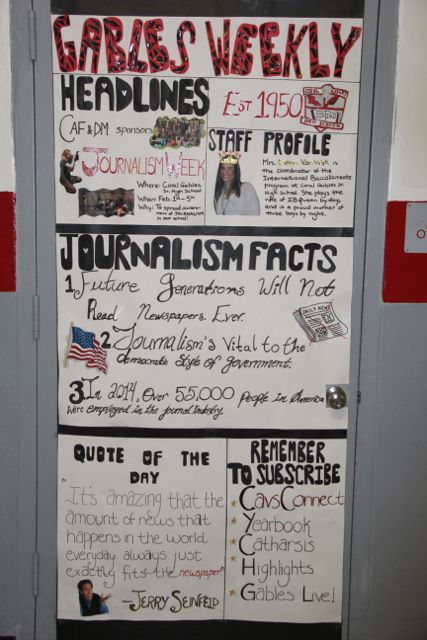 GABLES WEEKLY
HEADLINES
CAF & DM sponsors
JOURNALISM WEEK
Where: Coral Gables
Sr. High School
When: Feb 1st - 5th
Why: To spread aware-
ness of JOURNALISM
in our school!
EST 1950
STAFF PROFILE
Mrs. Van Wyk is
the coordinator of the
International Baccalaureate
program at Coral Gables Sr.
High School. She plays the
role of IB Queen by day,
and is a proud mother of
three boys by night.
JOURNALISM FACTS
1. Future Generations Will Not
Read Newspapers. Ever.
DAILY NEWS
2. Journalism's Vital to the
democratic style of government.
3. In 2014, Over 55,000 people in America
were employed in the journal industry.
QUOTE OF THE
DAY
"It's amazing that the
amount of news that
happens in the world
everyday always just
exactly fits the newspaper."
-JERRY SEINFELD
REMEMBER
TO SUBSCRIBE
CavsConnect
Yearbook
Catharsis
Highlights
Gables Live!